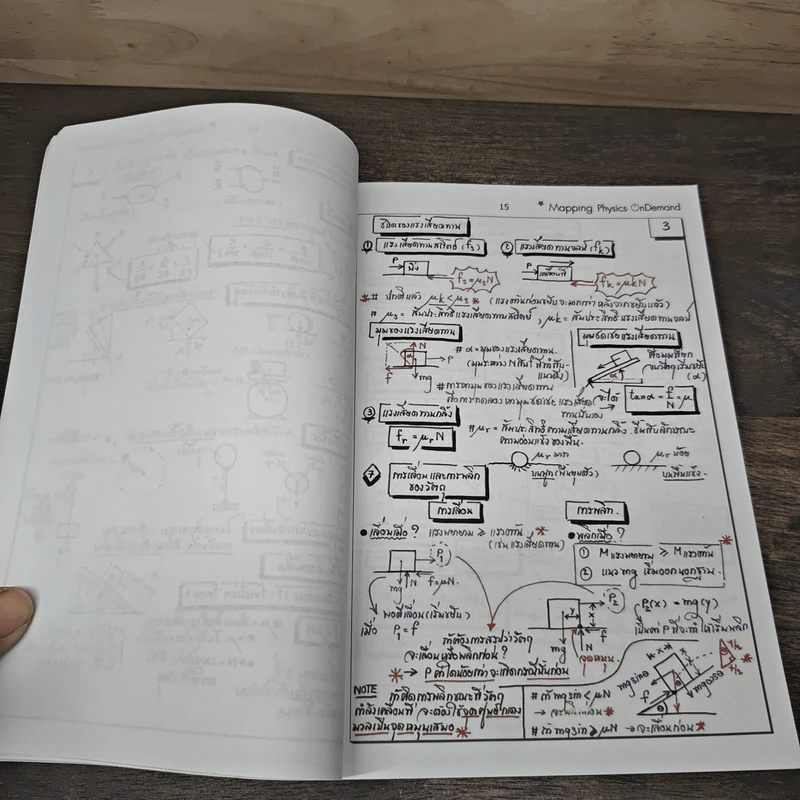 15 * Mapping Physics OnDemand
3
ชนิดของแรงเสียดทาน
① แรงเสียดทานสถิตย์ (fs) ② แรงเสียดทานจลน์ (fk)
P นิ่ง fs = μsN P เคลื่อนที่ fk = μkN
* # ปกติแล้ว μk < μs * (แรงตอนก่อนขยับจะมากกว่าหลังจากขยับแล้ว)
# μs = สัมประสิทธิ์แรงเสียดทานสถิตย์ , μk = สัมประสิทธิ์แรงเสียดทานจลน์
มุมของแรงเสียดทาน
มุมชดเชยแรงเสียดทาน
N P f mg
# α = มุมของแรงเสียดทาน
(α)
# การหามุมของแรงเสียดทาน
จะได้ tanα = f/N = μ
③ แรงเสียดทานกลิ้ง
fr = μrN
# μr = สัมประสิทธิ์ความเสียดทานกลิ้ง ขึ้นกับลักษณะ
ความอ่อนแข็งของพื้น.
μr มาก μr น้อย
บนพื้นแข็ง.
7 การเลื่อนและการพลิก
ของวัตถุ
การเลื่อน การพลิก.
• เลื่อนเมื่อ ? แรงพยายาม ≥ แรงต้าน *
(เช่นแรงเสียดทาน)
P1
mg N f=μN.
พอดีเลื่อน (เริ่มขยับ)
เมื่อ P1 = f
• พลิกเมื่อ ?
① Mแรงพยายาม ≥ Mแรงต้าน *
② แนว mg เริ่มออกนอกฐาน.
P2
P2(x) = mg(y)
เป็นค่า P ที่จะทำให้เริ่มพลิก
mg N f
จุดหมุน
ถ้าต้องการสรุปว่าวัตถุ
จะเลื่อนหรือพลิกก่อน ?
* → P ค่าใดน้อยกว่าจะเกิดกรณีนั้นก่อน
NOTE ถ้าคิดการพลิกขณะที่วัตถุ
กำลังเคลื่อนที่ จะต้องใช้จุดศูนย์กลาง
มวลเป็นจุดหมุนเสมอ *
# ถ้า mgsinθ < μN
→ จะพลิกก่อน *
→ จะเลื่อนก่อน *
mgsinθ mgcosθ f θ